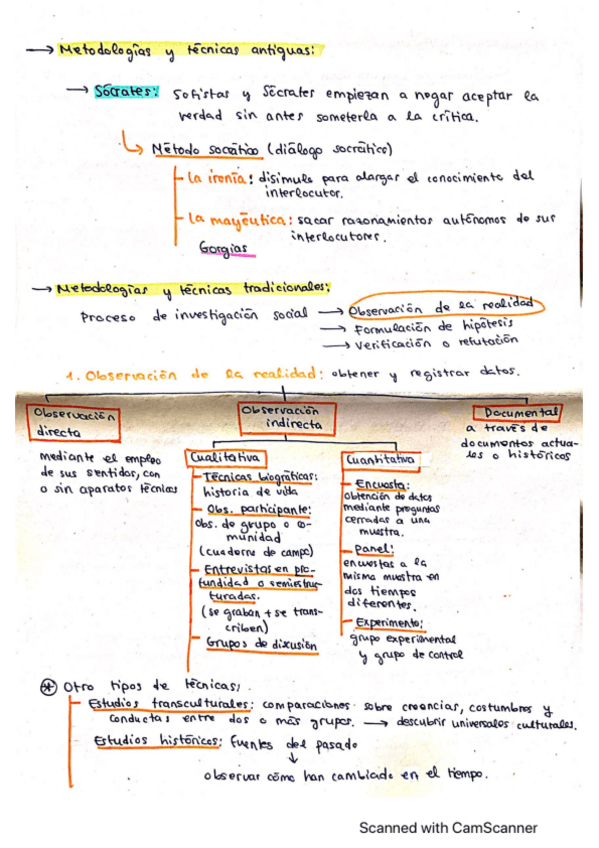 → Metodologías y técnicas antiguas:
→ Sócrates: Sofistas y Sócrates empiezan a negar aceptar la
verdad sin antes someterla a la crítica.
Método socrático (diálogo socrático)
- La ironía: disimulo para alargar el conocimiento del
interlocutor.
- La mayéutica: sacar razonamientos autónomos de sus
interlocutores.
Gorgias
→ Metodologías y técnicas tradicionales:
Proceso de investigación social → Observación de la realidad
→ Formulación de hipótesis
→ Verificación o refutación
1. Observación de la realidad: obtener y registrar datos.
Observación
directa
mediante el empleo
de sus sentidos, con
o sin aparatos técnicos
Observación
indirecta
Cualitativa
- Técnicas biográficas:
historia de vida
- Obs. participante:
obs. de grupo o co-
munidad
(cuaderno de campo)
- Entrevistas en pro-
fundidad o semiestruc-
turadas.
(se graban + se trans-
criben)
- Grupos de dixusión
Cuantitativa
- Encuesta:
obtención de datos
mediante preguntas
cerradas a una
muestra.
- Panel:
encuestas a la
misma muestra en
dos tiempos
diferentes.
- Experimento:
grupo experimental
y grupo de control
Documental
a través de
documentos actua-
les o históricos
* Otro tipos de técnicas:
- Estudios transculturales: comparaciones sobre creencias, costumbres y
conductas entre dos o más grupos. → descubrir universales culturales.
- Estudios históricos: fuentes del pasado
↓
observar cómo han cambiado en el tiempo.
Scanned with CamScanner